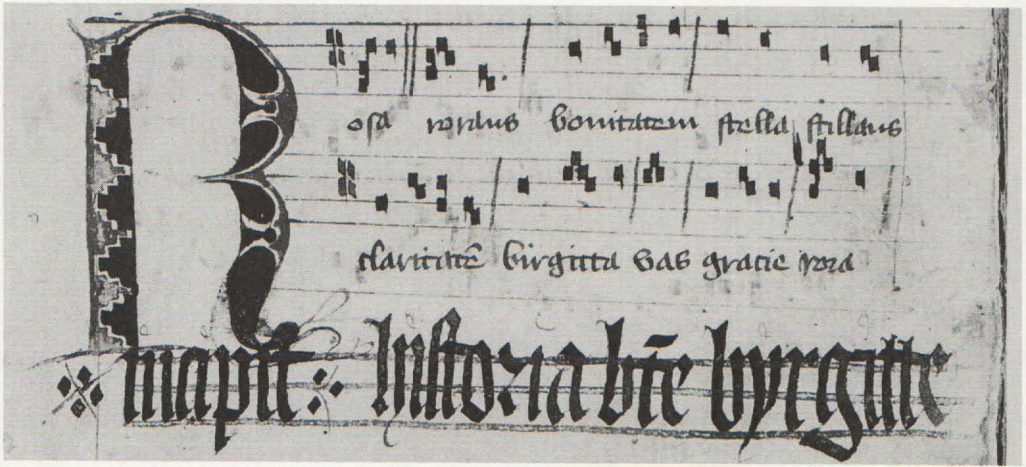 Rosa rorans bonitatem stella stillans
claritatē birgitta vas gracie rora
Incipit historia btē byrgitte